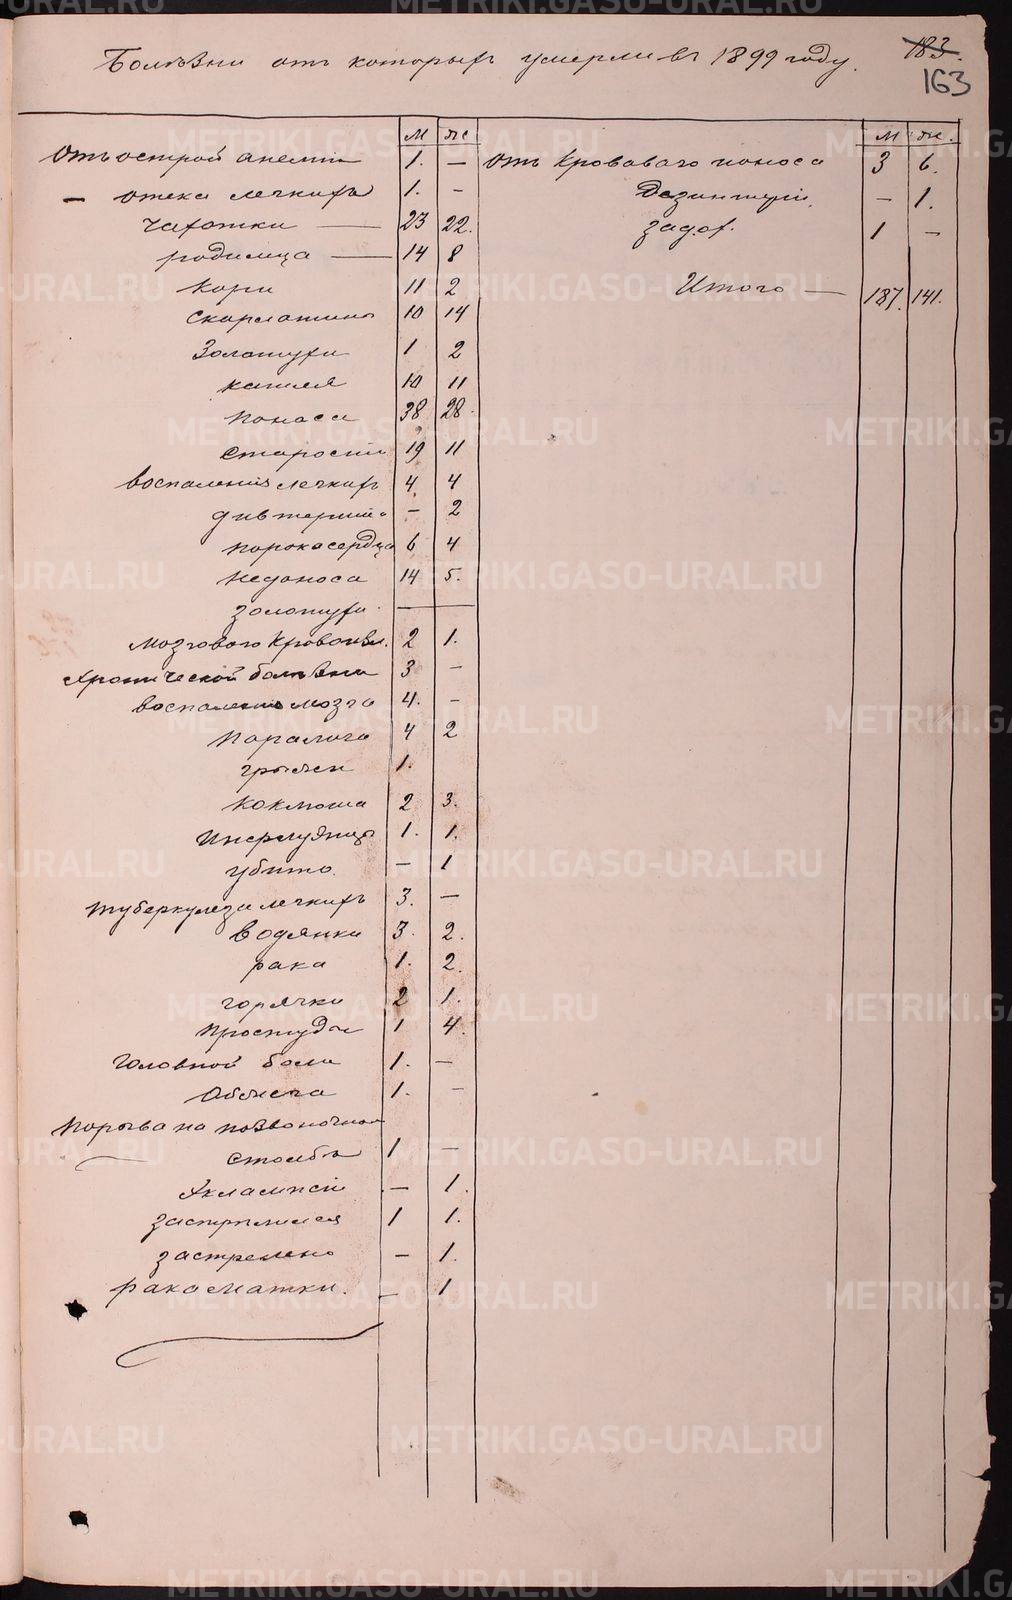 Болѣзни отъ которыхъ умерли въ 1899 году.
183.
163
М ж
Отъ острой анеміи 1. —
— отека легкихъ 1. —
Чахотки — 23 22.
родимца — 14 8
Кори 11 2
Скарлатины 10 14
Золотухи 1 2
кашля 10 11
Поноса 38 28.
Старости 19 11
воспаленія легкихъ 4. 4
дифтерита — 2
порока сердца 6 4
Недоноса 14 5.
золотухи. —
Мозгового Кровоизл. 2 1.
Хронической болѣзни 3 —
воспаленія мозга 4. —
Паралича 4 2
грыжи 1.
Коклюша 2 3.
1. 1.
убито. — 1
туберкулеза легкихъ 3. —
водянки 3. 2.
рака 1. 2.
горячки 2 1.
Простуды 1 4.
Головной боли 1. —
Обжога 1. —
Нарыва на позвоночном
столбѣ 1 —
Эклампсіи — 1.
застрѣлился 1 1.
застрелено — 1.
рака матки. — 1
М. ж.
Отъ Кроваваго поноса 3 6.
Дезинтеріи. — 1.
задох. 1 —
Итого — 187. 141.
METRIKI.GASO-URAL.RU